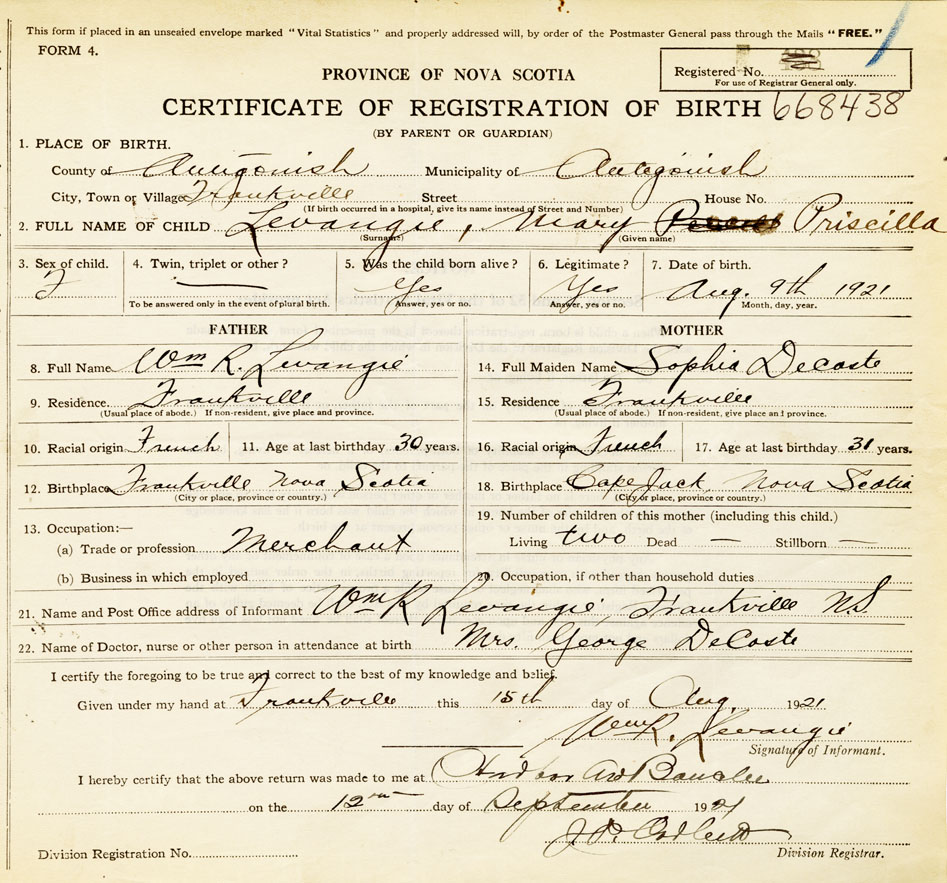 This form if placed in an unsealed envelope marked "Vital Statistics" and properly addressed will, by order of the Postmaster General pass through the Mails "FREE."
FORM 4.
Registered No.
For use of Registrar General only.
PROVINCE OF NOVA SCOTIA
CERTIFICATE OF REGISTRATION OF BIRTH 668438
(BY PARENT OR GUARDIAN)
1. PLACE OF BIRTH.
County of Antigonish Municipality of Antigonish
City, Town or Village Frankville Street House No.
(If birth occurred in a hospital, give its name instead of Street and Number)
2. FULL NAME OF CHILD Levangie, Mary Priscilla
(Surname) (Given name)
3. Sex of child. 4. Twin, triplet or other? 5. Was the child born alive? 6. Legitimate? 7. Date of birth.
F — Yes Yes Aug. 9th 1921
To be answered only in the event of plural birth. Answer, yes or no. Answer, yes or no. Month, day, year.
FATHER MOTHER
8. Full Name Wm R. Levangie 14. Full Maiden Name Sophia DeCoste
9. Residence. Frankville 15. Residence Frankville
(Usual place of abode.) If non-resident, give place and province. (Usual place of abode.) If non-resident, give place and province.
10. Racial origin French 11. Age at last birthday 30 years. 16. Racial origin French 17. Age at last birthday 31 years.
12. Birthplace Frankville Nova Scotia 18. Birthplace Cape Jack, Nova Scotia
(City or place, province or country.) (City or place, province or country.)
13. Occupation:— 19. Number of children of this mother (including this child.)
(a) Trade or profession Merchant Living two Dead — Stillborn —
(b) Business in which employed 20. Occupation, if other than household duties
21. Name and Post Office address of Informant Wm R Levangie, Frankville N.S.
22. Name of Doctor, nurse or other person in attendance at birth Mrs. George DeCoste
I certify the foregoing to be true and correct to the best of my knowledge and belief.
Given under my hand at Frankville this 15th day of Aug. 1921
Wm R. Levangie
Signature of Informant.
I hereby certify that the above return was made to me at Harbor au Bouche
on the 12th day of September 1921
J. P. Corbett
Division Registration No. Division Registrar.